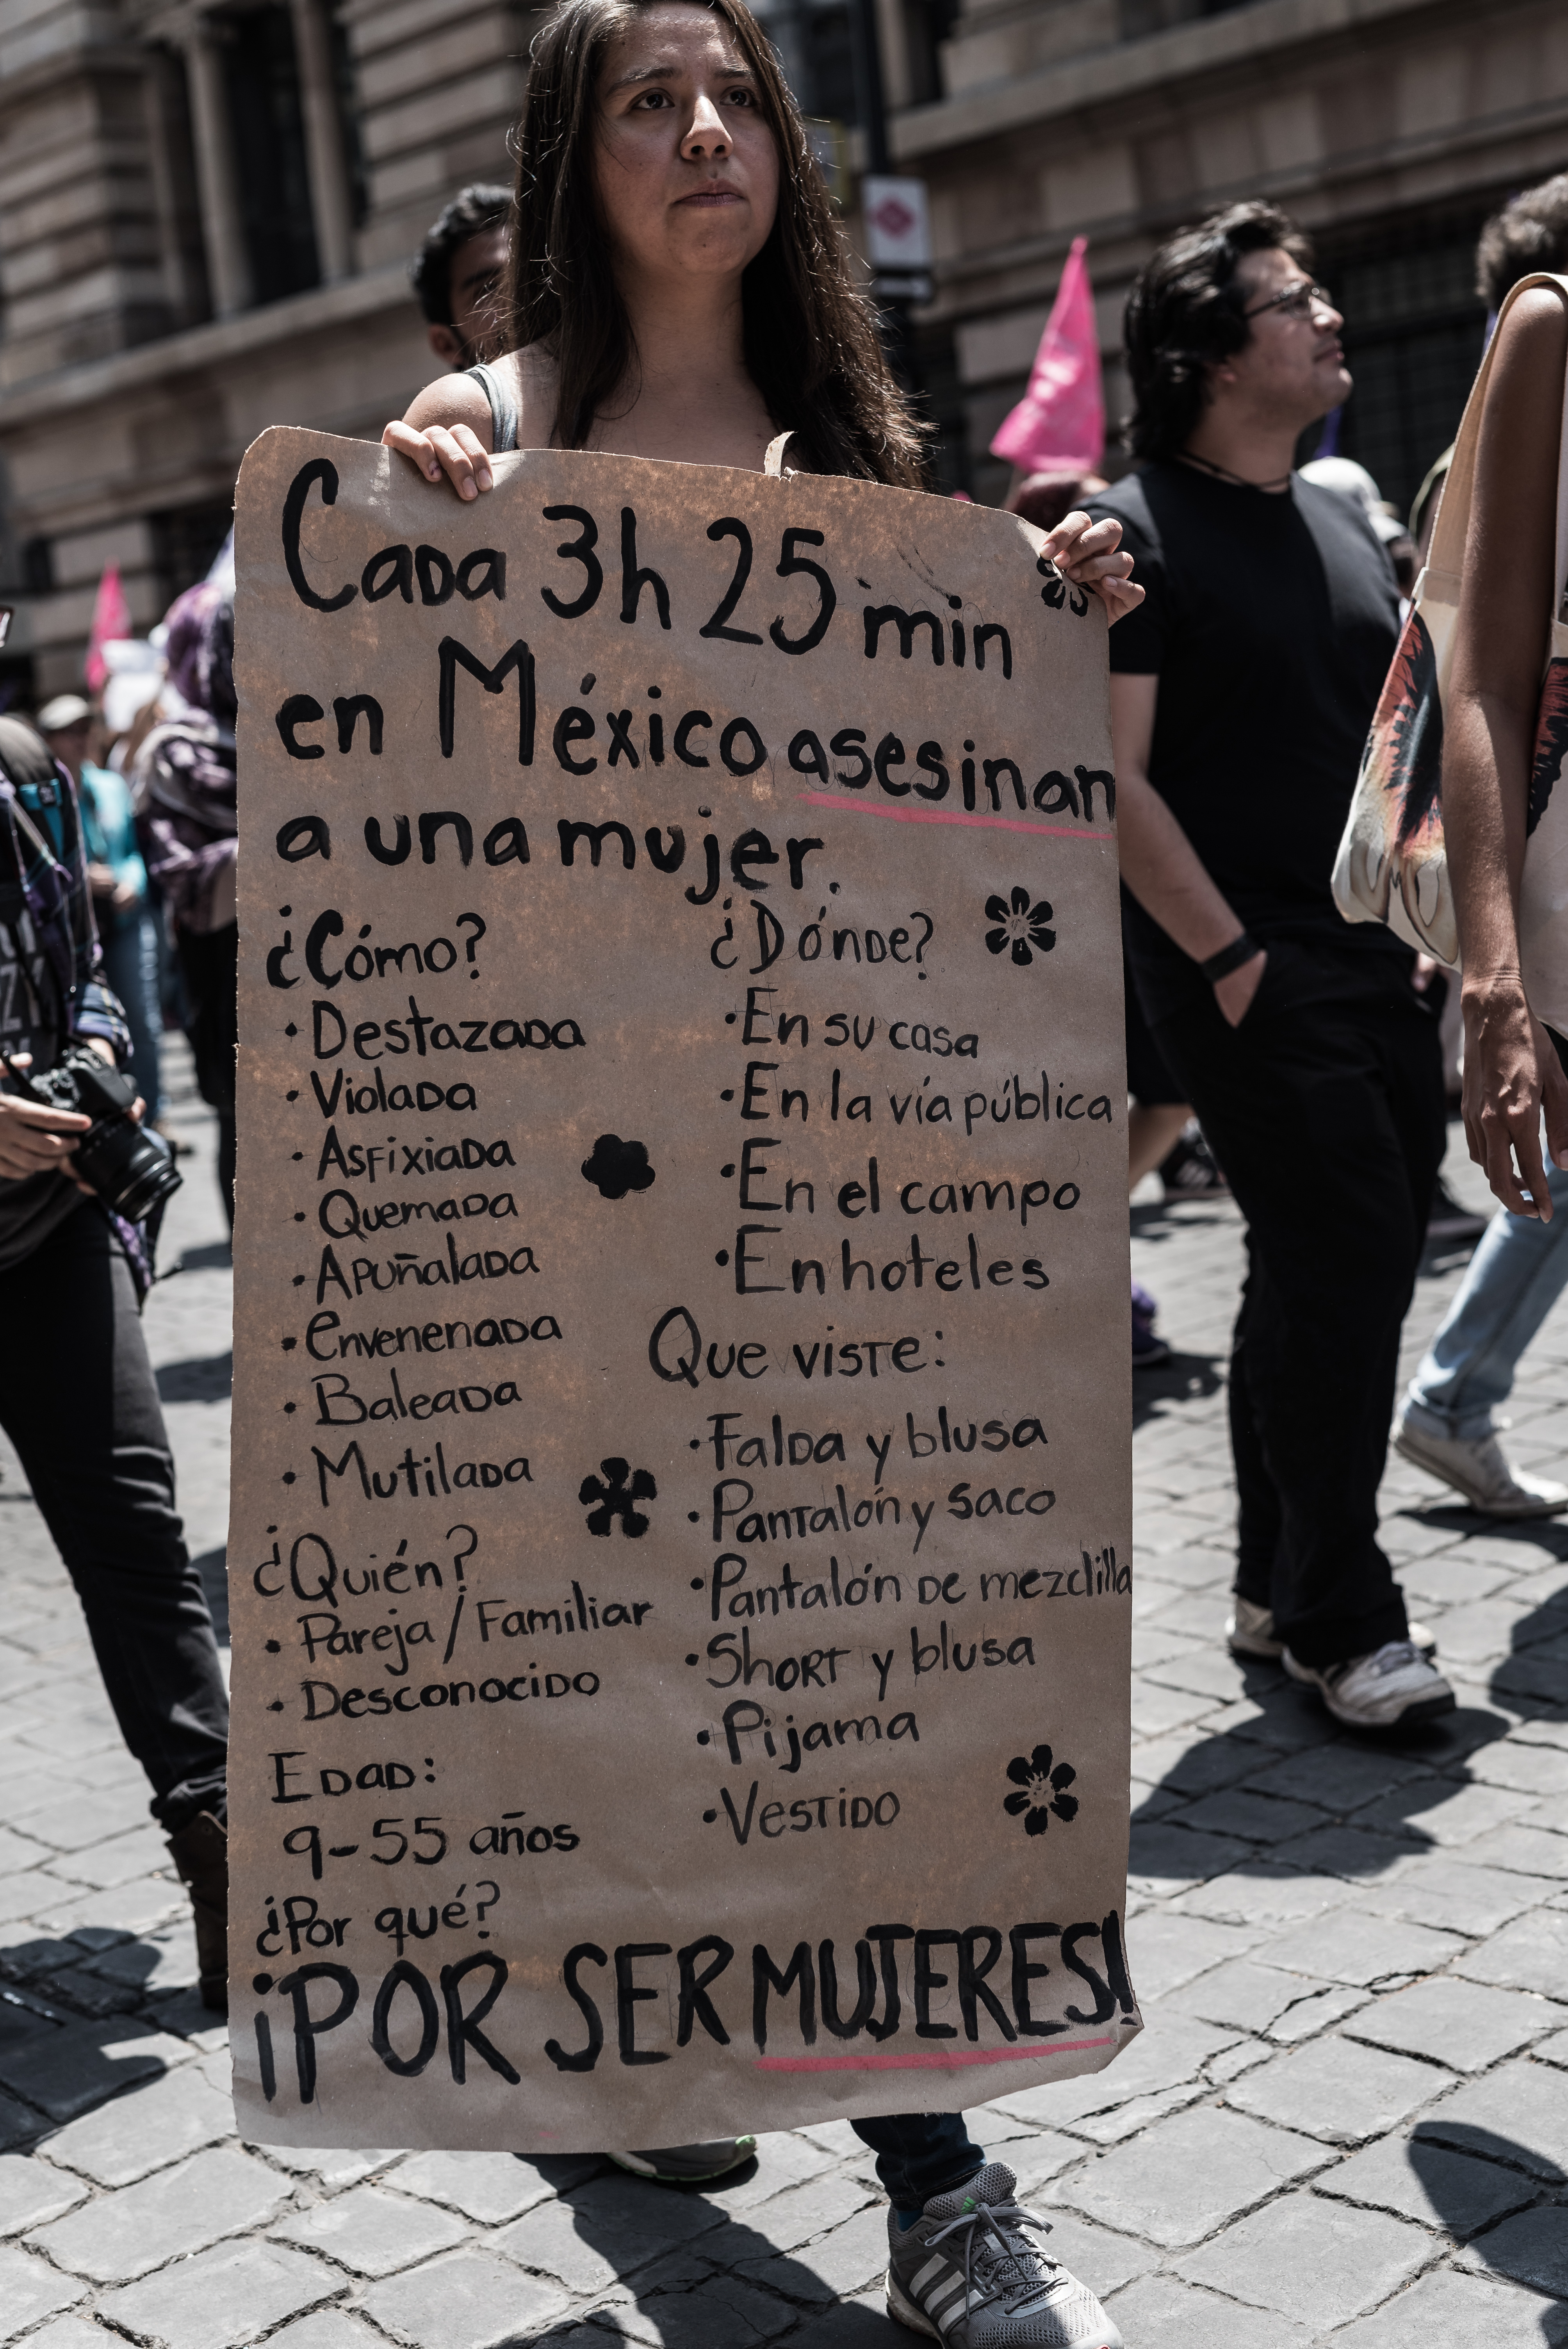 Cada 3h 25 min
en México asesinan
a una mujer.
¿Cómo?
• Destazada
• Violada
• Asfixiada
• Quemada
• Apuñalada
• envenenada
• Baleada
• Mutilada
¿Quién?
• Pareja / Familiar
• Desconocido
Edad:
9-55 años
¿Dónde?
• En su casa
• En la vía pública
• En el campo
• En hoteles
Que viste:
• Falda y blusa
• Pantalón y saco
• Pantalón de mezclilla
• Short y blusa
• Pijama
• Vestido
¿Por qué?
¡POR SER MUJERES!